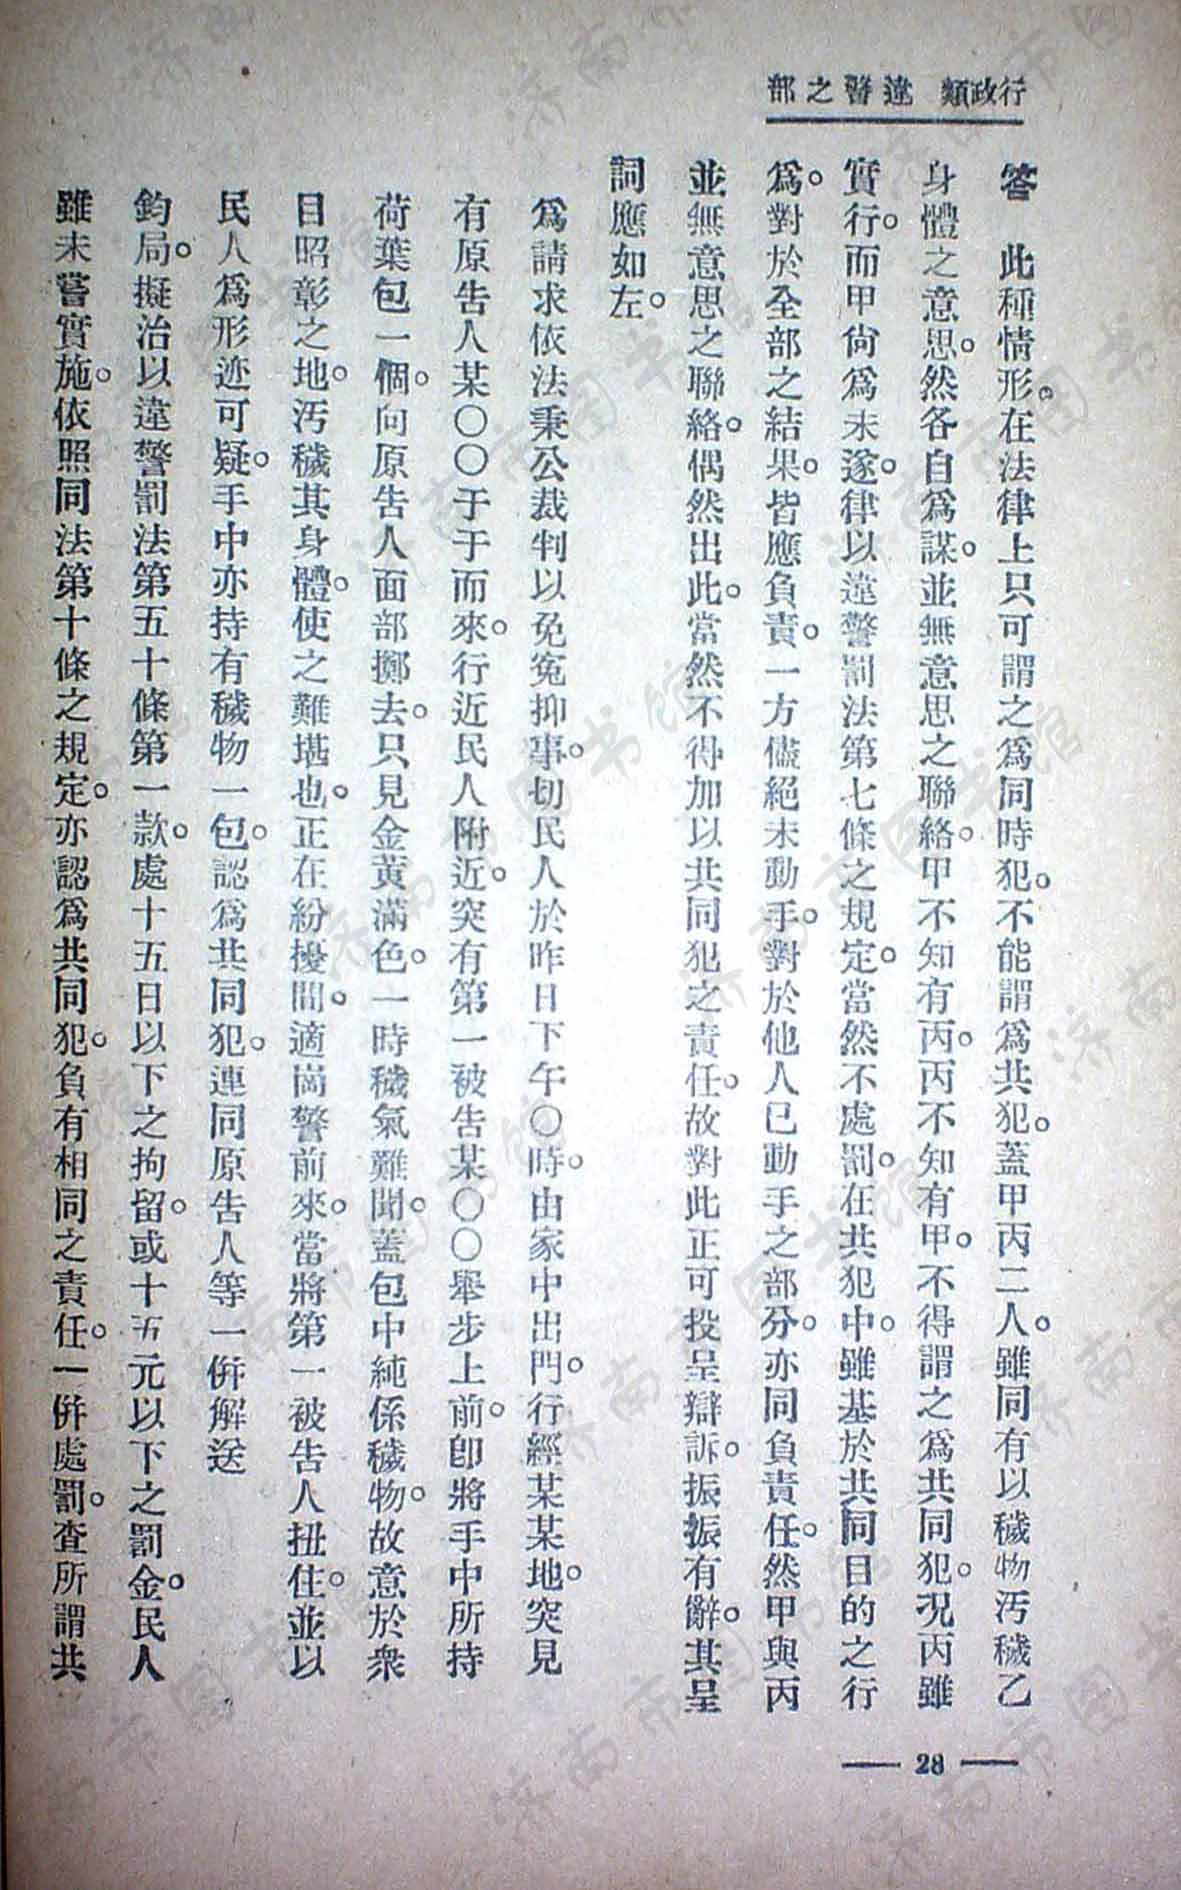 行政類 違警之部
答 此種情形。在法律上只可謂之為同時犯。不能謂為共犯。蓋甲丙二人。雖同有以穢物汚穢乙
身體之意思。然各自為謀。並無意思之聯絡。甲不知有丙。丙不知有甲。不得謂之為共同犯。況丙雖
實行。而甲尙為未遂。律以違警罰法第七條之規定。當然不處罰。在共犯中。雖基於共同目的之行
為。對於全部之結果。皆應負責。一方儘絕未動手。對於他人已動手之部分。亦同負責任。然甲與丙
並無意思之聯絡。偶然出此。當然不得加以共同犯之責任。故對此正可投呈辯訴。振振有辭。其呈
詞應如左。
為請求依法秉公裁判以免冤抑事。切民人於昨日下午〇時。由家中出門。行經某某地。突見
有原告人某〇〇于于而來。行近民人附近。突有第一被告某〇〇舉步上前。卽將手中所持
荷葉包一個。向原告人面部擲去。只見金黄滿色。一時穢氣難聞。蓋包中純係穢物。故意於衆
目昭彰之地。汚穢其身體。使之難堪也。正在紛擾間。適崗警前來。當將第一被告人扭住。並以
民人為形迹可疑。手中亦持有穢物一包。認為共同犯。連同原告人等一併解送
鈞局。擬治以違警罰法第五十條第一款。處十五日以下之拘留。或十五元以下之罰金。民人
雖未嘗實施。依照同法第十條之規定。亦認為共同犯。負有相同之責任。一併處罰。査所謂共
— 28 —
济南市图书馆